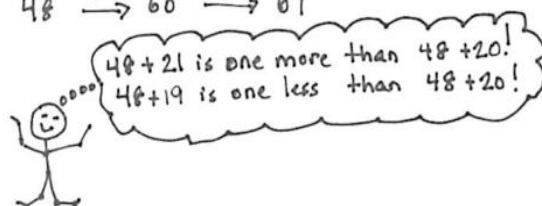 48 → →
48 + 21 is one more than 48 + 20!
48 + 19 is one less than 48 + 20!